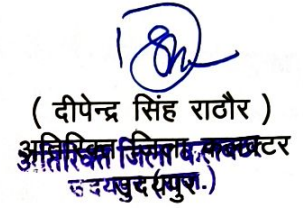 ( दीपेन्द्र सिंह राठौर )
अतिरिक्त जिला कलक्टर
उदयपुर (राज.)